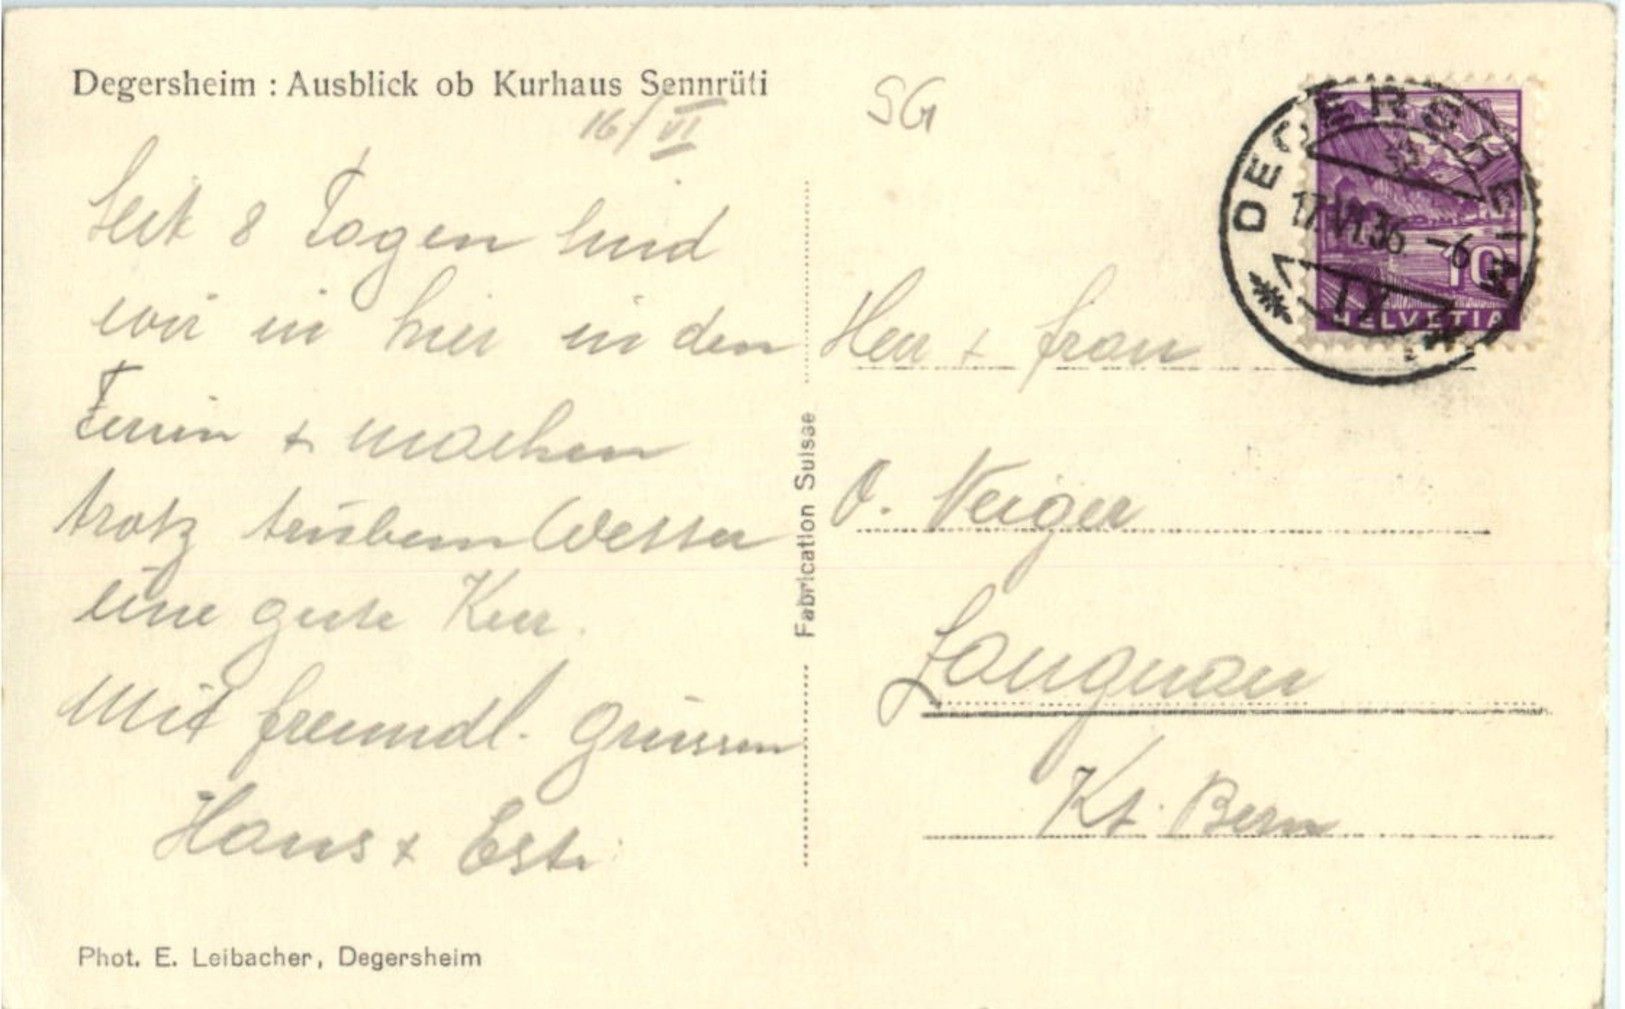 Degersheim : Ausblick ob Kurhaus Sennrüti
16/VI
Seit 8 Tagen sind
wir in hier in den
Ferien + machen
trotz trübem Wetter
eine gute Kur.
Mit freundl. Grüssen
Hans +
Phot. E. Leibacher, Degersheim
Fabrication Suisse
SG
DEGERSHEIM
17.VI.36.-6
HELVETIA
10
Herr + Frau
O. Neiger
Langnau
Kt. Bern